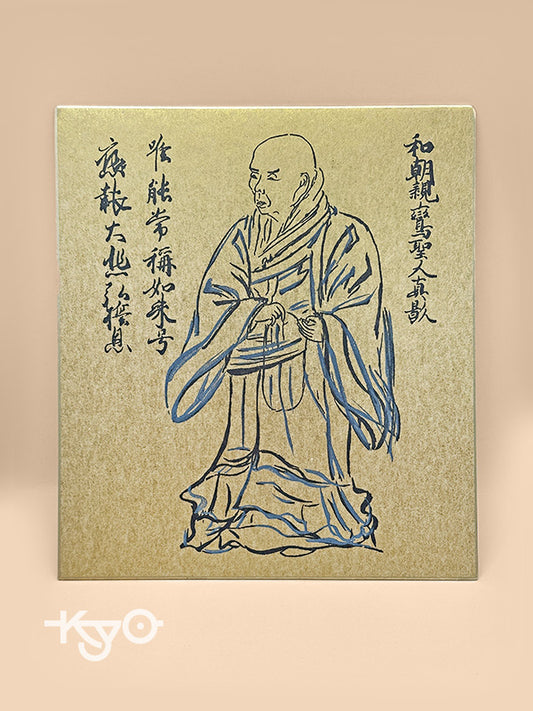 和朝親鸞聖人真影
唯能常稱如来号
應報大悲弘誓恩
Kyo